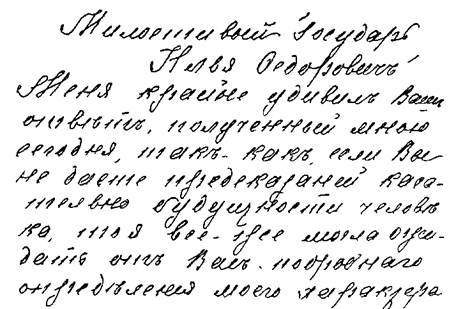 Милостивый Государь
Илья Федоровичъ
Меня крайне удивилъ Вашъ
отвѣтъ, полученный мною
сегодня, такъ-какъ, если Вы
не даете предсказаній каса-
тельно будущности человѣ
ка, то я все-же могла ожи-
дать отъ Васъ подробнаго
опредѣления моего характера